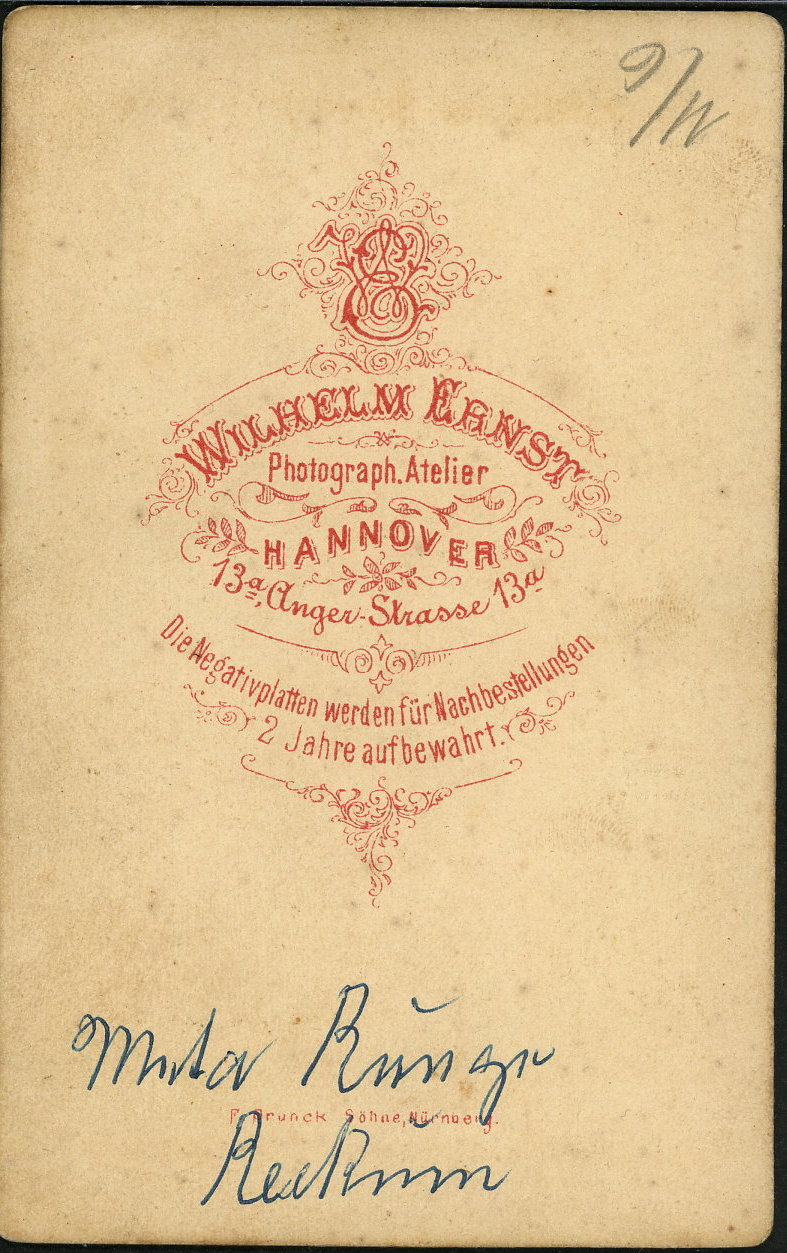 WILHELM ERNST
Photograph. Atelier
HANNOVER
13a, Anger-Strasse 13a
Die Negativplatten werden für Nachbestellungen
2 Jahre aufbewahrt.
Meta Runge
Söhne, Nürnberg.